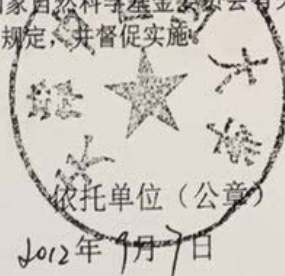 家自然科学基金委员会有关
规定，并督促实施。
大学
依托单位（公章）
2012年9月7日